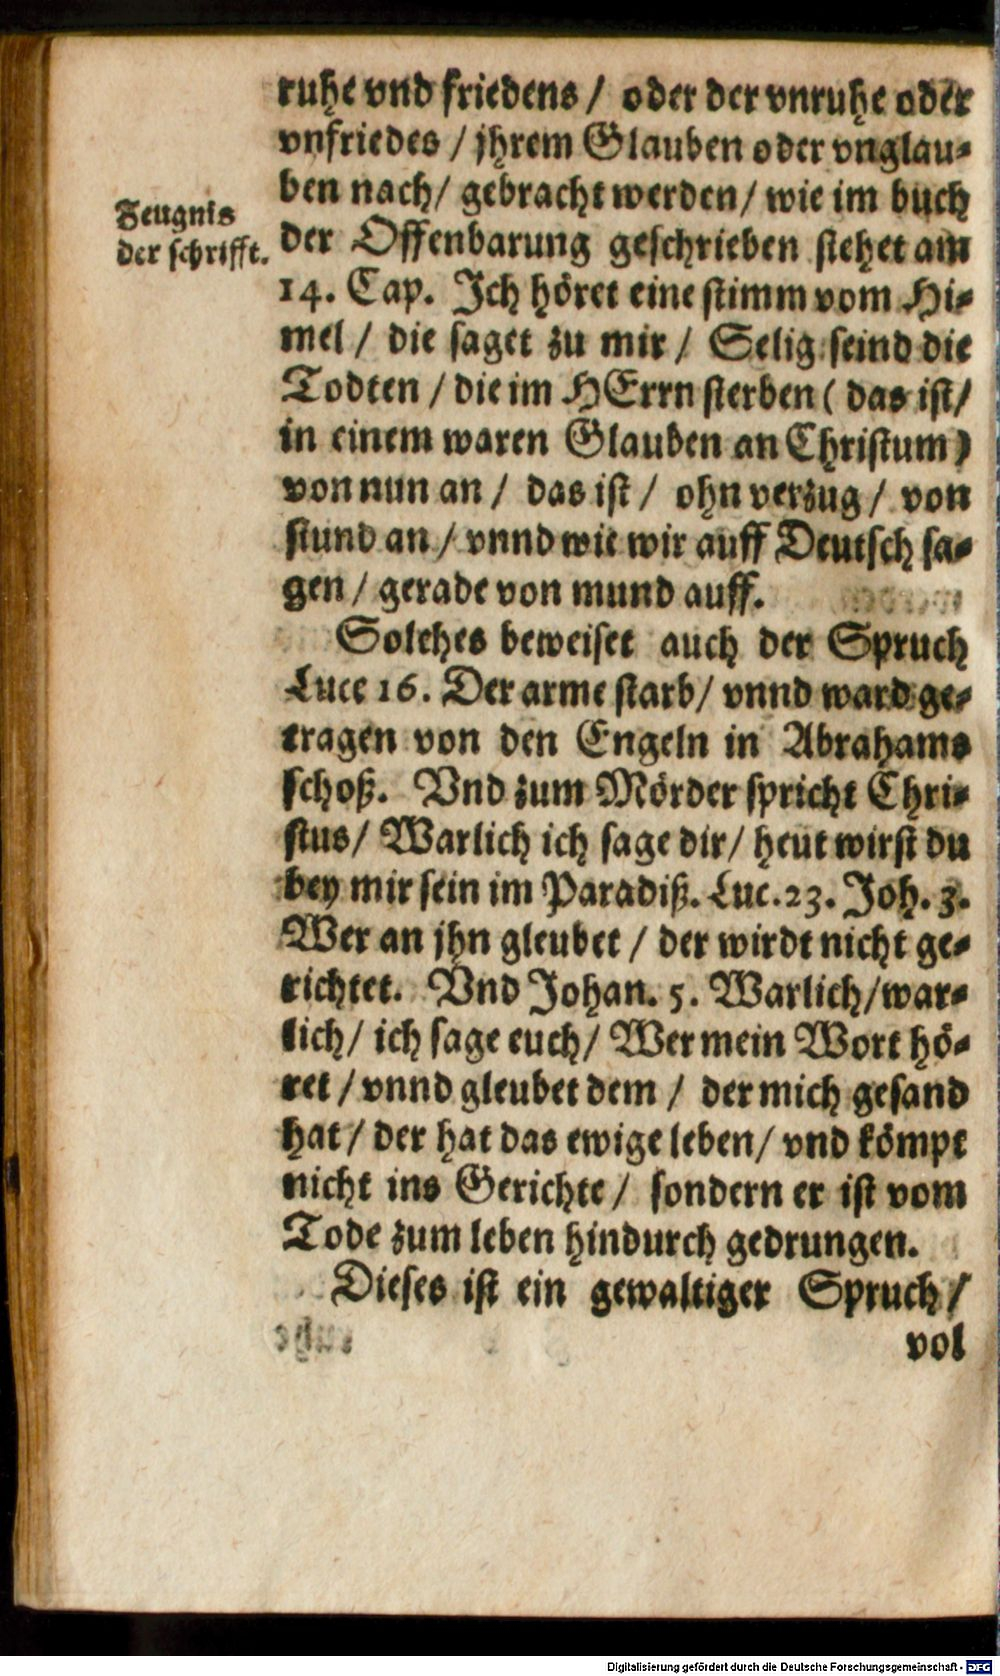 ruhe vnd friedens / oder der vnruhe oder
vnfriedes / jhrem Glauben oder vnglau-
ben nach/ gebracht werden/ wie im buch
Zeugnis
der schrifft.
der Offenbarung geschrieben stehet am
14. Cap. Ich höret eine stimm vom Hi-
mel / die saget zu mir / Selig seind die
Todten / die im HErrn sterben ( das ist/
in einem waren Glauben an Christum)
von nun an / das ist / ohn verzug / von
stund an / vnnd wie wir auff Deutsch sa-
gen / gerade von mund auff.
Solches beweiset auch der Spruch
Luce 16. Der arme starb/ vnnd ward ge-
tragen von den Engeln in Abrahams
schoß. Vnd zum Mörder spricht Chri-
stus/ Warlich ich sage dir/ heut wirst du
bey mir sein im Paradiß. Luc. 23. Joh. 3.
Wer an jhn gleubet / der wirdt nicht ge-
richtet. Vnd Johan. 5. Warlich/war-
lich/ ich sage euch/ Wer mein Wort hö-
ret / vnnd gleubet dem / der mich gesand
hat/ der hat das ewige leben/ vnd kömpt
nicht ins Gerichte/ sondern er ist vom
Tode zum leben hindurch gedrungen.
Dieses ist ein gewaltiger Spruch/
vol
Digitalisierung gefördert durch die Deutsche Forschungsgemeinschaft - DFG